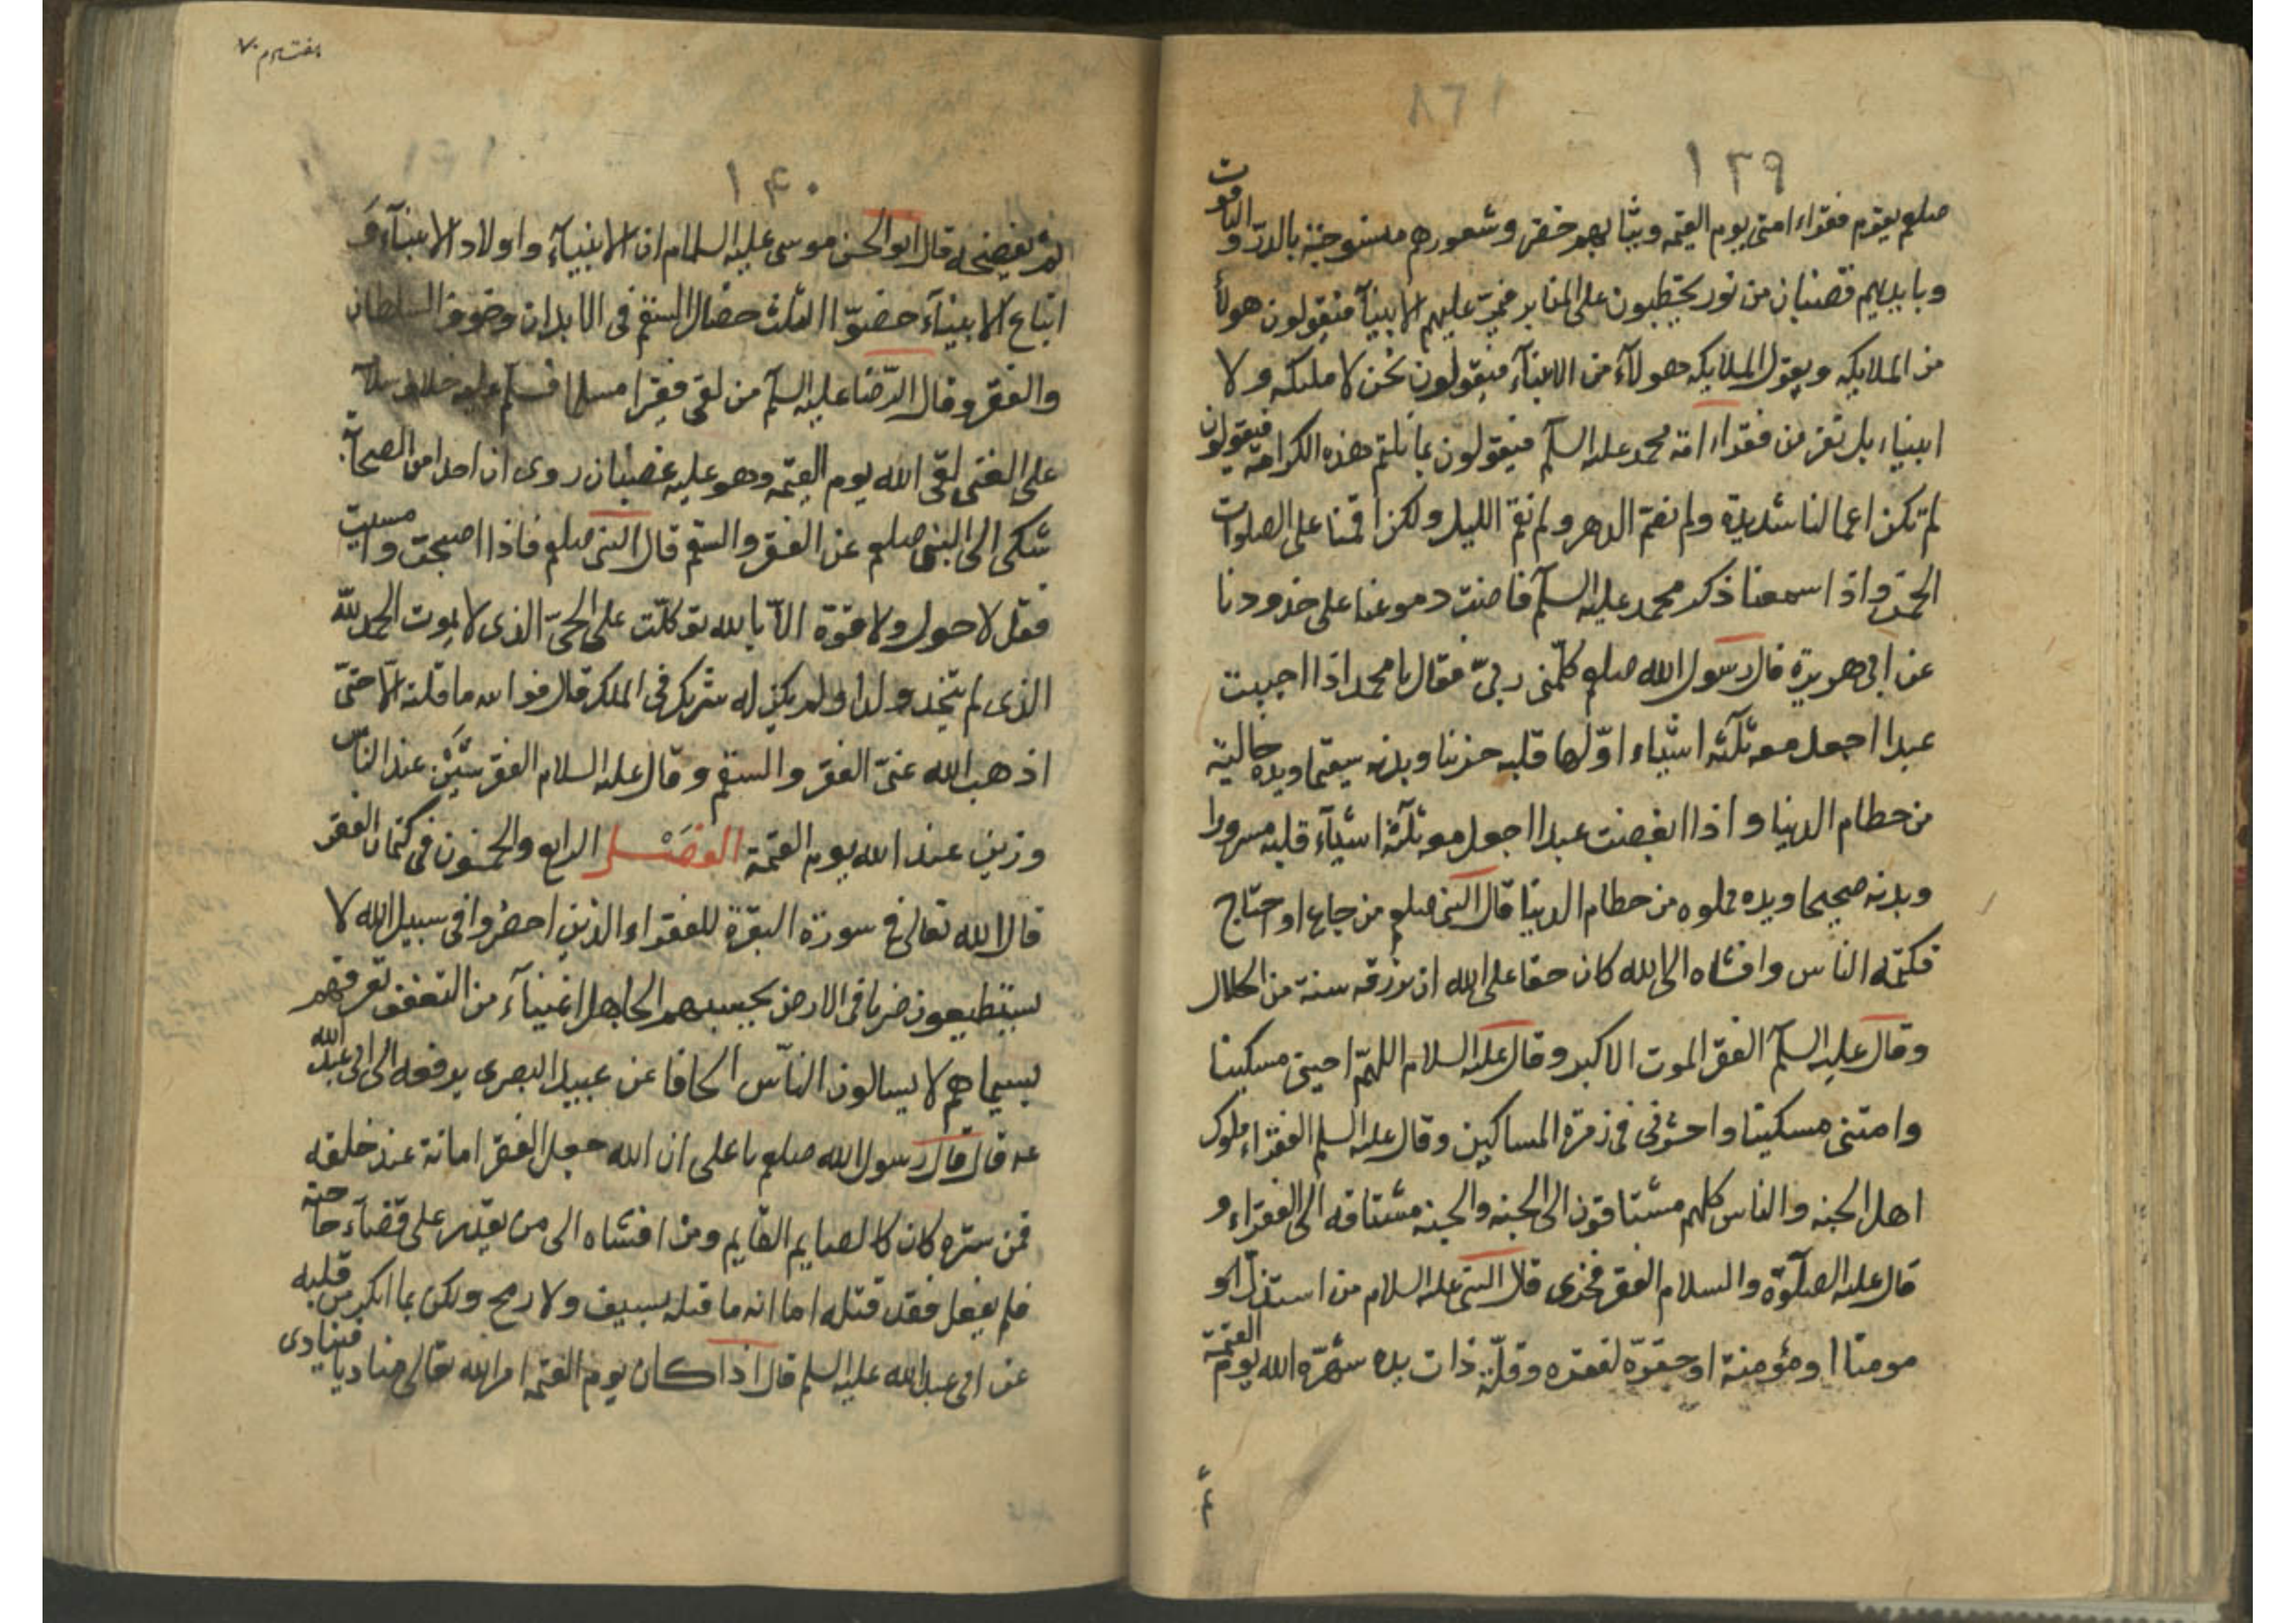 ١٣٩
صلعم يقوم فقراء امتى يوم القيمه وثيابهم خضر وشعورهم منسوجة بالدرّ والياقوت
وبايديهم قضبان من نور يخطبون على المنابر فيمرّ عليهم الانبيآء فيقولون هولآء
من الملايكه ويقول الملايكه هولآء من الانبيآء فيقولون نحن لا ملئكه ولا
انبياء بل نفر من فقراء امة محمد عليه السلم فيقولون بما نلتم هذه الكرامة فيقولون
لم تكن اعمالنا شديدة ولم نصم الدهر ولم نقم الليل ولكن اقمنا على الصلوات
الخمس واذا سمعنا ذكر محمد عليه السلم فاضت دموعنا على خدودنا
عن ابى هريرة قال رسول الله صلعم كلّمنى ربىّ فقال يا محمد اذا احببت
عبدا اجعل معه ثلثه اشياء اوّلها قلبه حزينا وبدنه سقيما ويده خالية
من حطام الدنيا واذا ابغضت عبدا اجعل معه ثلثة اشيآء قلبه مسرورا
وبدنه صحيحا ويده مملوه من حطام الدنيا قال النبى صلعم من جاع او احتاج
فكتمه الناس وافشاه الى الله كان حقا على الله ان يرزقه سنة من الحلال
وقال عليه السلم الفقر الموت الاكبر وقال عليه السلام اللهمّ احينى مسكينا
وامتنى مسكينا واحشرنى فى زمرة المساكين وقال عليه السلم الفقراء ملوك
اهل الجنه والناس كلهم مشتاقون الى الجنه والجنه مشتاقه الى الفقراء و
قال عليه الصلوة والسلام الفقر فخرى قال النبى عليه السلام من استذل او
مومنا او مؤمنة او حقّره لفقره وقلّة ذات يده شهّره الله يوم القيمة
١٤٠
ثم يفضحه قال ابو الحسن موسى عليه السلام ان الانبيآء واولاد الانبيآء وَ
اتباع الانبيآء خصّوا الثلث خصال السقم فى الابدان وخوف السلطان
والفقر وقال الرّضا عليه السلم من لقى فقيرا مسلما فسلم عليه خلاف سلامه
على الغنى لقى الله يوم القيمه وهو عليه غضبان روى ان احدا من الصحابة
شكى الى النبى صلعم عن الفقر والسقم قال النبى صلعم فاذا اصبحت وامسيت
فقل لا حول ولا قوة الاّ بالله توكلت على الحىّ الذى لا يموت الحمد لله
الذى لم يتخذ ولدا ولم يكن له شريك فى الملك قال فوالله ما قلته الاّ حتّى
اذهب الله عنىّ الفقر والسقم وقال عليه السلام الفقر شَيْن عند الناس
وزين عند الله يوم القيمة الفصْل الرابع والخمسون فى كتمان الفقر
قال الله تعالى فى سورة البقرة للفقراء الذين احصُروا فى سبيل الله لا
يستطيعون ضربا فى الارض يحسبهم الجاهل اغنيآء من التعفف تعرفهم
بسيماهم لا يسالون النّاس الحافا عن عبيد البصرى يرفعه الى ابى عبد الله
عه قال قال رسول الله صلعم يا على ان الله جعل الفقر امانة عند خلقه
فمن ستره كان كالصايم القايم ومن افشاه الى من يقدر على قضآء حاجته
فلم يفعل فقد قتله اما انه ما قتله بسيف ولا رمح ولكن بما انكر من قلبه
عن ابى عبد الله عليه السلم قال اذا كان يوم القيمه امر الله تعالى مناديا فينادى